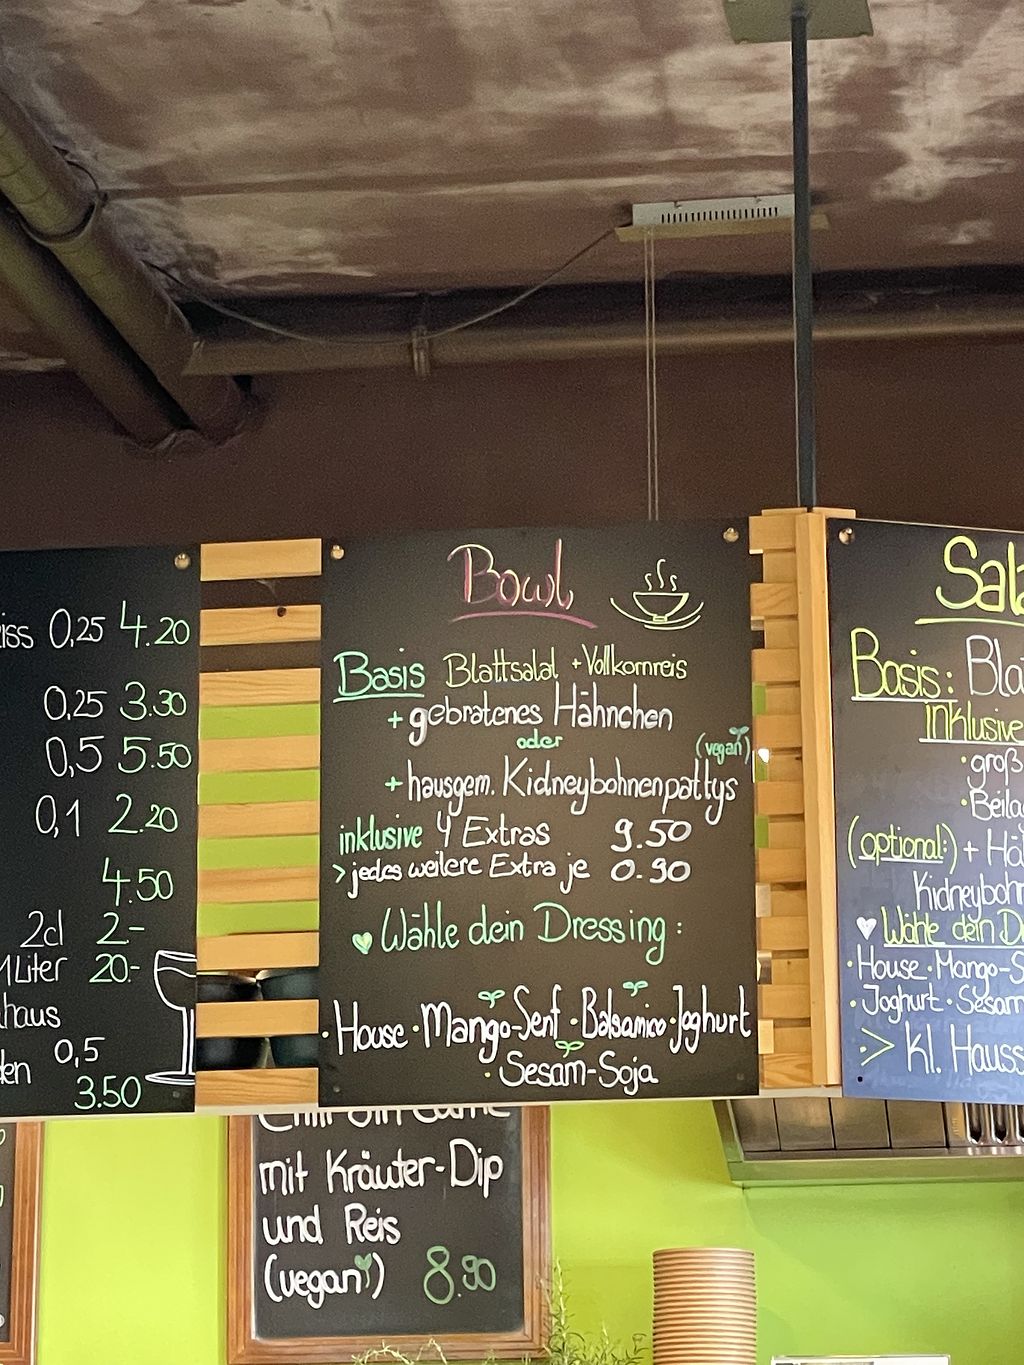 0,25 4.20
0,25 3.30
0,5 5.50
0,1 2.20
4.50
2cl 2.-
1Liter 20.-
haus
0,5
3.50
Bowl
Basis Blattsalat + Vollkornreis
+ gebratenes Hähnchen
oder
(vegan)
+ hausgem. Kidneybohnenpattys
inklusive 4 Extras 9.50
> jedes weitere Extra je 0.90
Wähle dein Dressing:
· House · Mango-Senf · Balsamico · Joghurt
· Sesam-Soja
Sala
Basis: Bla
inklusive
· groß
· Beilag
(optional:) + Hä
Kidneyboh
Wähle dein D
· House · Mango-S
· Joghurt · Sesam
> Kl. Hauss
mit Kräuter-Dip
und Reis
(vegan) 8.90